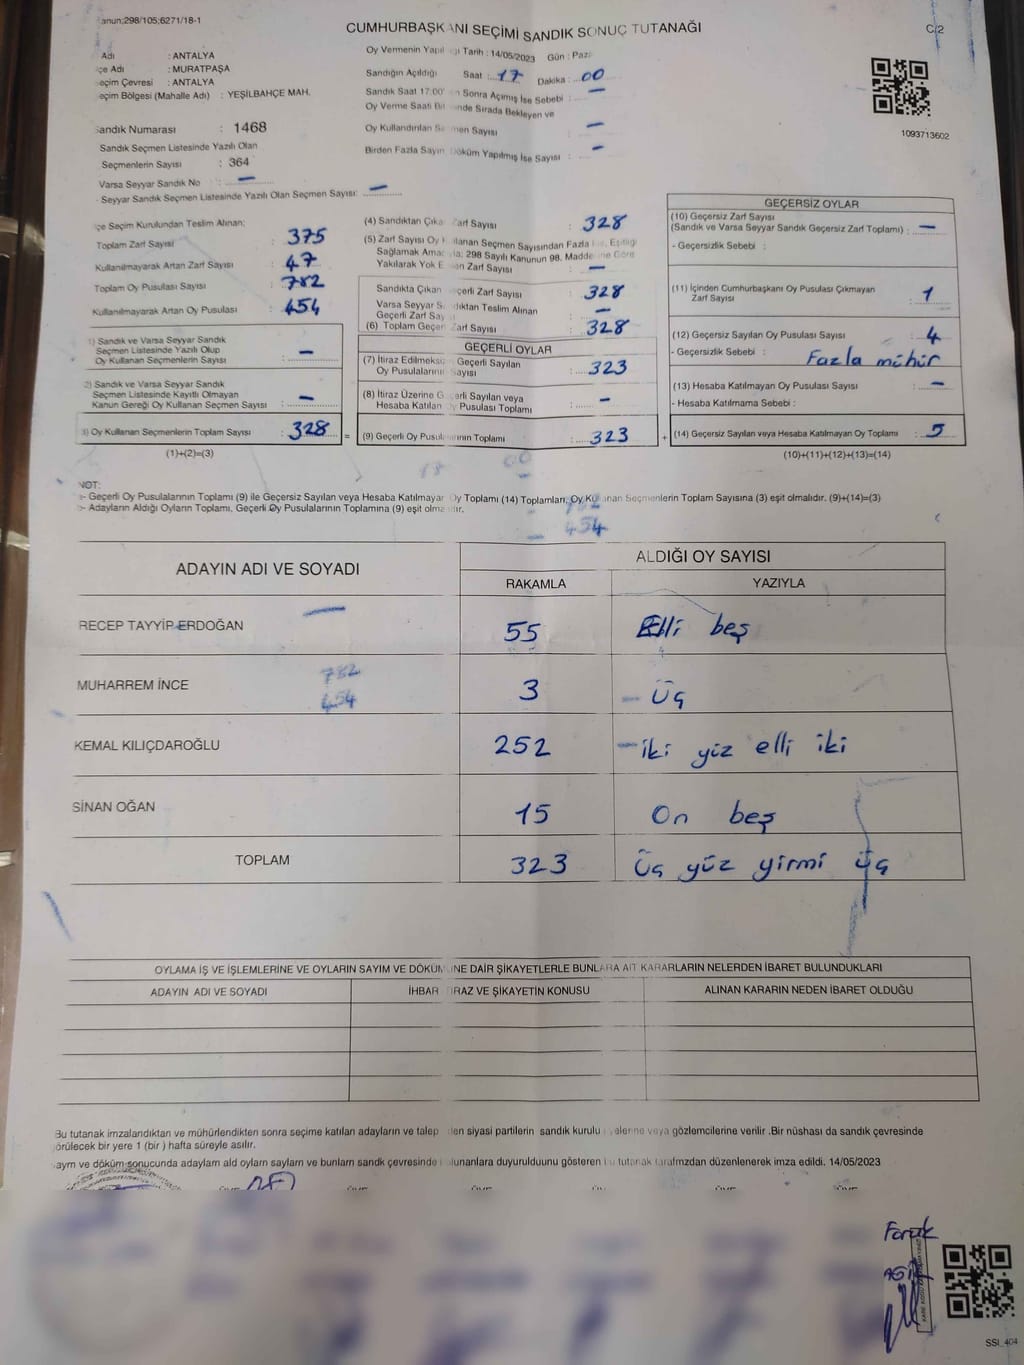 anun:298/105:6271/18-1
CUMHURBAŞKANI SEÇİMİ SANDIK SONUÇ TUTANAĞI
C/2
Adı : ANTALYA
çe Adı : MURATPAŞA
eçim Çevresi : ANTALYA
eçim Bölgesi (Mahalle Adı) : YEŞİLBAHÇE MAH.
Sandık Numarası : 1468
Sandık Seçmen Listesinde Yazılı Olan
Seçmenlerin Sayısı : 364
Varsa Seyyar Sandık No : —
Seyyar Sandık Seçmen Listesinde Yazılı Olan Seçmen Sayısı: —
Oy Vermenin Yapıl ğı Tarih : 14/05/2023 Gün : Paz
Sandığın Açıldığı Saat : 17 Dakika : 00
Sandık Saat 17:00' n Sonra Açılmış İse Sebebi : —
Oy Verme Saati Bit nde Sırada Bekleyen ve
Oy Kullandırılan Se men Sayısı : —
Birden Fazla Sayım Döküm Yapılmış İse Sayısı : —
1093713602
çe Seçim Kurulundan Teslim Alınan:
Toplam Zarf Sayısı : 375
Kullanılmayarak Artan Zarf Sayısı : 47
Toplam Oy Pusulası Sayısı : 782
Kullanılmayarak Artan Oy Pusulası : 454
1) Sandık ve Varsa Seyyar Sandık
Seçmen Listesinde Yazılı Olup
Oy Kullanan Seçmenlerin Sayısı : —
2) Sandık ve Varsa Seyyar Sandık
Seçmen Listesinde Kayıtlı Olmayan
Kanun Gereği Oy Kullanan Seçmen Sayısı : —
3) Oy Kullanan Seçmenlerin Toplam Sayısı : 328 =
(1)+(2)=(3)
(4) Sandıktan Çıka Zarf Sayısı : 328
(5) Zarf Sayısı Oy K llanan Seçmen Sayısından Fazla İse, Eşitliği
Sağlamak Amac yla; 298 Sayılı Kanunun 98. Maddesine Göre
Yakılarak Yok E en Zarf Sayısı : —
Sandıkta Çıkan eçerli Zarf Sayısı : 328
Varsa Seyyar S dıktan Teslim Alınan
Geçerli Zarf Say : —
(6) Toplam Geçer Zarf Sayısı : 328
GEÇERLİ OYLAR
(7) İtiraz Edilmeksi Geçerli Sayılan
Oy Pusulalarını Sayısı : 323
(8) İtiraz Üzerine G çerli Sayılan veya
Hesaba Katılan Oy Pusulası Toplamı : —
(9) Geçerli Oy Pusul rının Toplamı : 323 +
GEÇERSİZ OYLAR
(10) Geçersiz Zarf Sayısı
(Sandık ve Varsa Seyyar Sandık Geçersiz Zarf Toplamı) : —
- Geçersizlik Sebebi :
(11) İçinden Cumhurbaşkanı Oy Pusulası Çıkmayan
Zarf Sayısı : 1
(12) Geçersiz Sayılan Oy Pusulası Sayısı : 4
- Geçersizlik Sebebi : Fazla mühür
(13) Hesaba Katılmayan Oy Pusulası Sayısı : —
- Hesaba Katılmama Sebebi :
(14) Geçersiz Sayılan veya Hesaba Katılmayan Oy Toplamı : 5
(10)+(11)+(12)+(13)=(14)
NOT:
- Geçerli Oy Pusulalarının Toplamı (9) ile Geçersiz Sayılan veya Hesaba Katılmayar Oy Toplamı (14) Toplamları, Oy Kullanan Seçmenlerin Toplam Sayısına (3) eşit olmalıdır. (9)+(14)=(3)
- Adayların Aldığı Oyların Toplamı, Geçerli Oy Pusulalarının Toplamına (9) eşit olma ıdır.
ADAYIN ADI VE SOYADI
ALDIĞI OY SAYISI
RAKAMLA YAZIYLA
RECEP TAYYİP ERDOĞAN 55 Elli beş
MUHARREM İNCE 3 – Üç
KEMAL KILIÇDAROĞLU 252 – iki yüz elli iki
SİNAN OĞAN 15 On beş
TOPLAM 323 Üç yüz yirmi üç
OYLAMA İŞ VE İŞLEMLERİNE VE OYLARIN SAYIM VE DÖKÜM NE DAİR ŞİKAYETLERLE BUNLARA AİT KARARLARIN NELERDEN İBARET BULUNDUKLARI
ADAYIN ADI VE SOYADI İHBAR İRAZ VE ŞİKAYETİN KONUSU ALINAN KARARIN NEDEN İBARET OLDUĞU
Bu tutanak imzalandıktan ve mühürlendikten sonra seçime katılan adayların ve talep den siyasi partilerin sandık kurulu yelerine veya gözlemcilerine verilir .Bir nüshası da sandık çevresinde
örülecek bir yere 1 (bir ) hafta süreyle asılır.
aym ve döküm sonucunda adaylarn ald oylarn saylarn ve bunlarn sandk çevresinde bulunanlara duyurulduunu gösteren bu tutanak tarafmzdan düzenlenerek imza edildi. 14/05/2023
Faruk
SSI_404